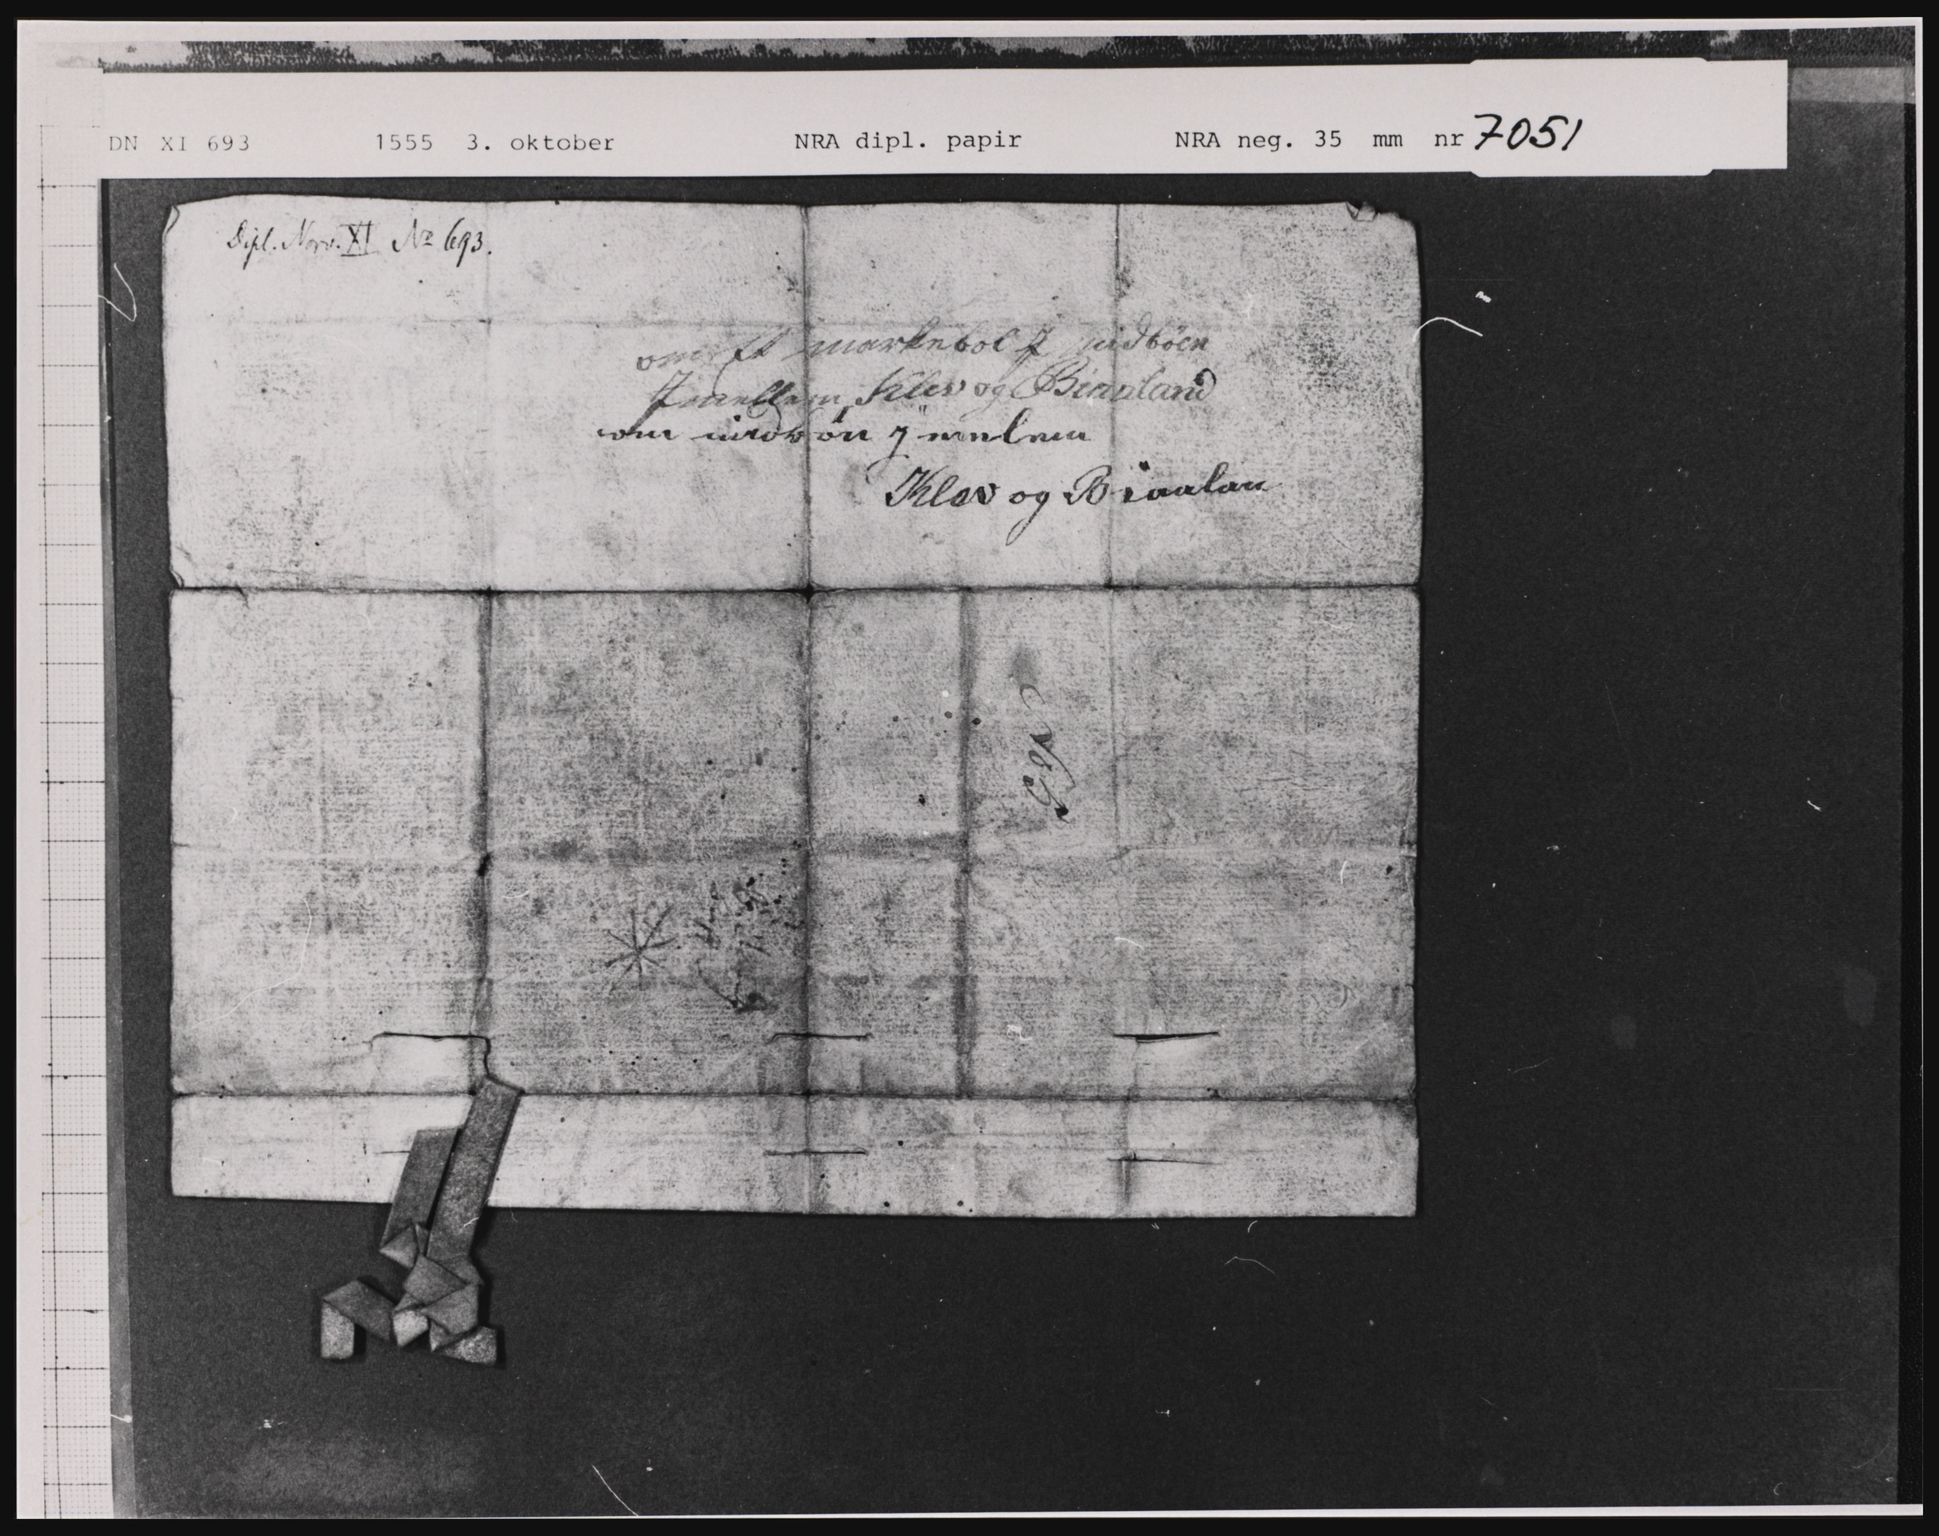 DN XI 693 1555 3. oktober NRA dipl. papir NRA neg. 35 mm nr 7051
Dipl. Norv. XI No 693.
om et markebol J midbøen
Jmellem Klev og Biaaland
om midbøn J mellem
Klev og Biaalan